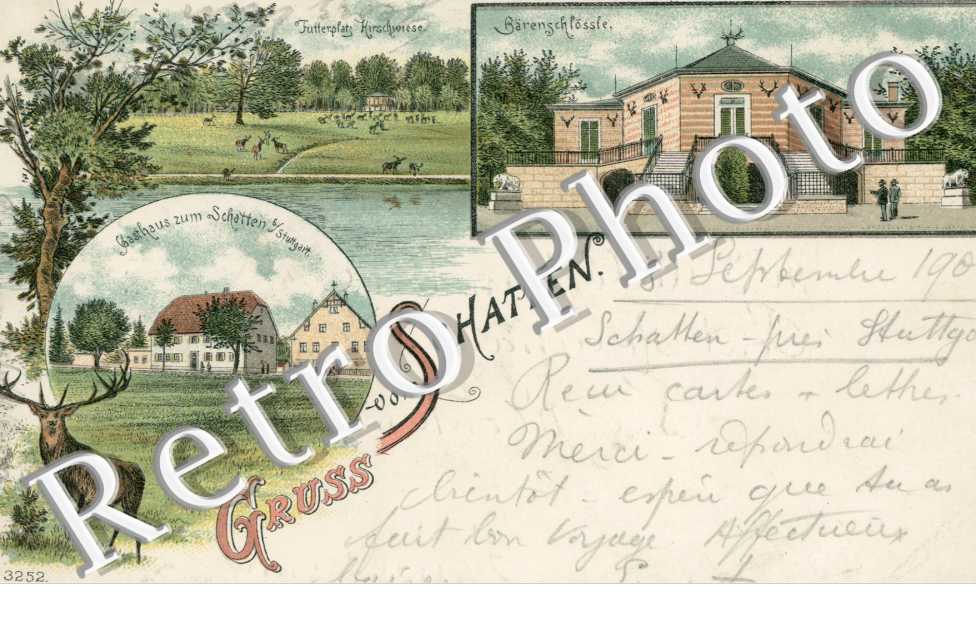 Futterplatz Hirschwiese.
Bärenschlössle.
Gasthaus zum Schatten b/Stuttgart.
GRUSS VOM SCHATTEN.
Septembre 190
Schatten - près Stuttga
Reçu cartes + lettres.
Merci - répondrai
bientôt - espère que tu as
fait bon voyage. Affectueux
3252.
Retro Photo